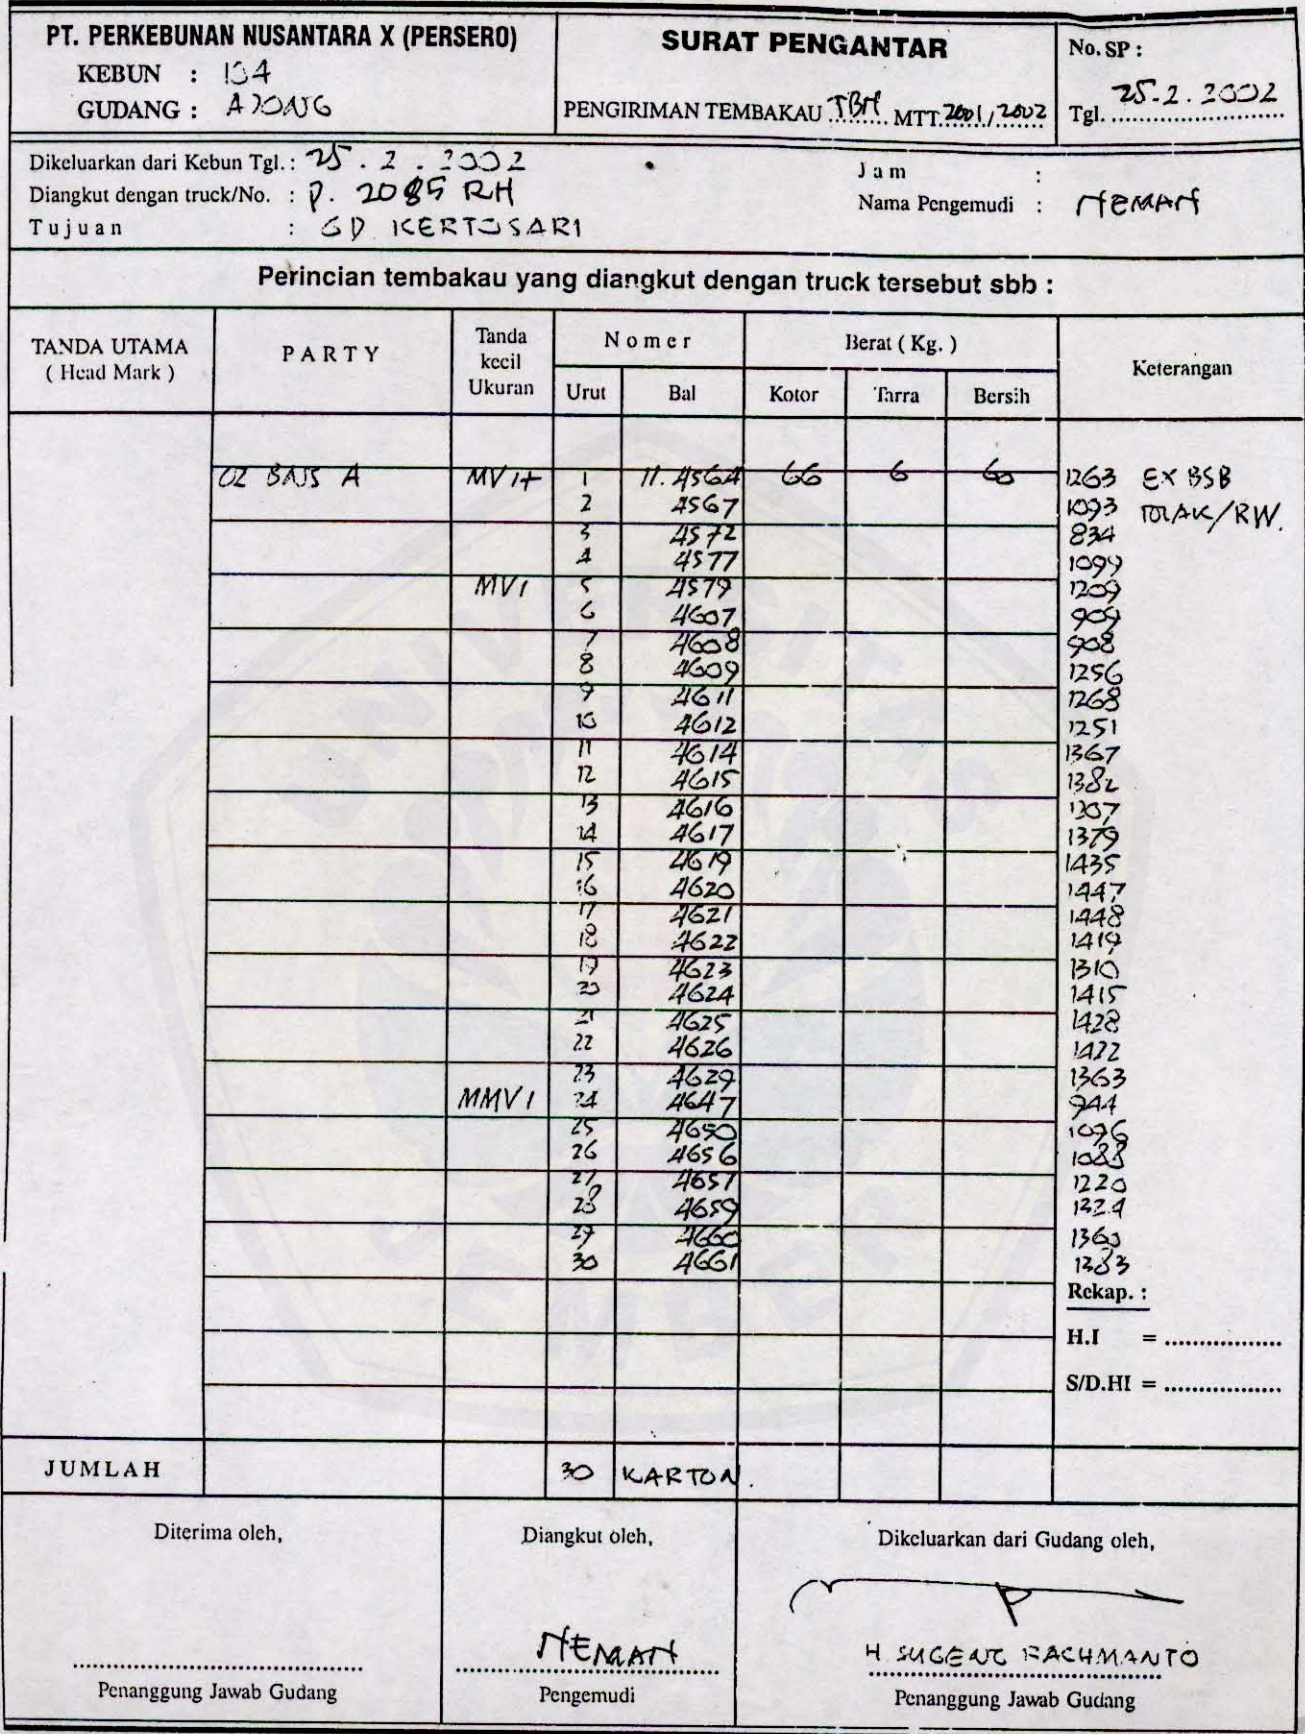 PT. PERKEBUNAN NUSANTARA X (PERSERO)
KEBUN : 134
GUDANG : AJONG
SURAT PENGANTAR
PENGIRIMAN TEMBAKAU TBH MTT. 2001/2002
No. SP :
Tgl. 25.2.2002
Dikeluarkan dari Kebun Tgl. : 25.2.2002
Diangkut dengan truck/No. : P. 2085 RH
Tujuan : GD KERTOSARI
Jam :
Nama Pengemudi : NEMAN
Perincian tembakau yang diangkut dengan truck tersebut sbb :
TANDA UTAMA (Head Mark) PARTY Tanda kecil Ukuran Nomer Berat (Kg.) Keterangan
Urut Bal Kotor Tarra Bersih
A MV 1+ 1 11. 4564 66 6 60 1263 EX BSB
2 4567 1093 /RW.
3 4572 834
4 4577 1099
MV1 5 4579 1209
6 4607 909
7 4608 908
8 4609 1256
9 4611 1268
10 4612 1251
11 4614 1367
12 4615 1382
13 4616 1307
14 4617 1379
15 4619 1435
16 4620 1447
17 4621 1448
18 4622 1419
19 4623 1310
20 4624 1415
21 4625 1428
22 4626 1422
23 4629 1363
MMV1 24 4647 944
25 4650 1096
26 4656 1088
27 4657 1220
28 4659 1324
29 4660 1360
30 4661 1383
Rekap. :
H.I = ..................
S/D.HI = ..................
JUMLAH 30 KARTON.
Diterima oleh, Diangkut oleh, Dikeluarkan dari Gudang oleh,
NEMAN H SUGENG RACHMANTO
Penanggung Jawab Gudang Pengemudi Penanggung Jawab Gudang
UNIVERSITAS
JEMBER